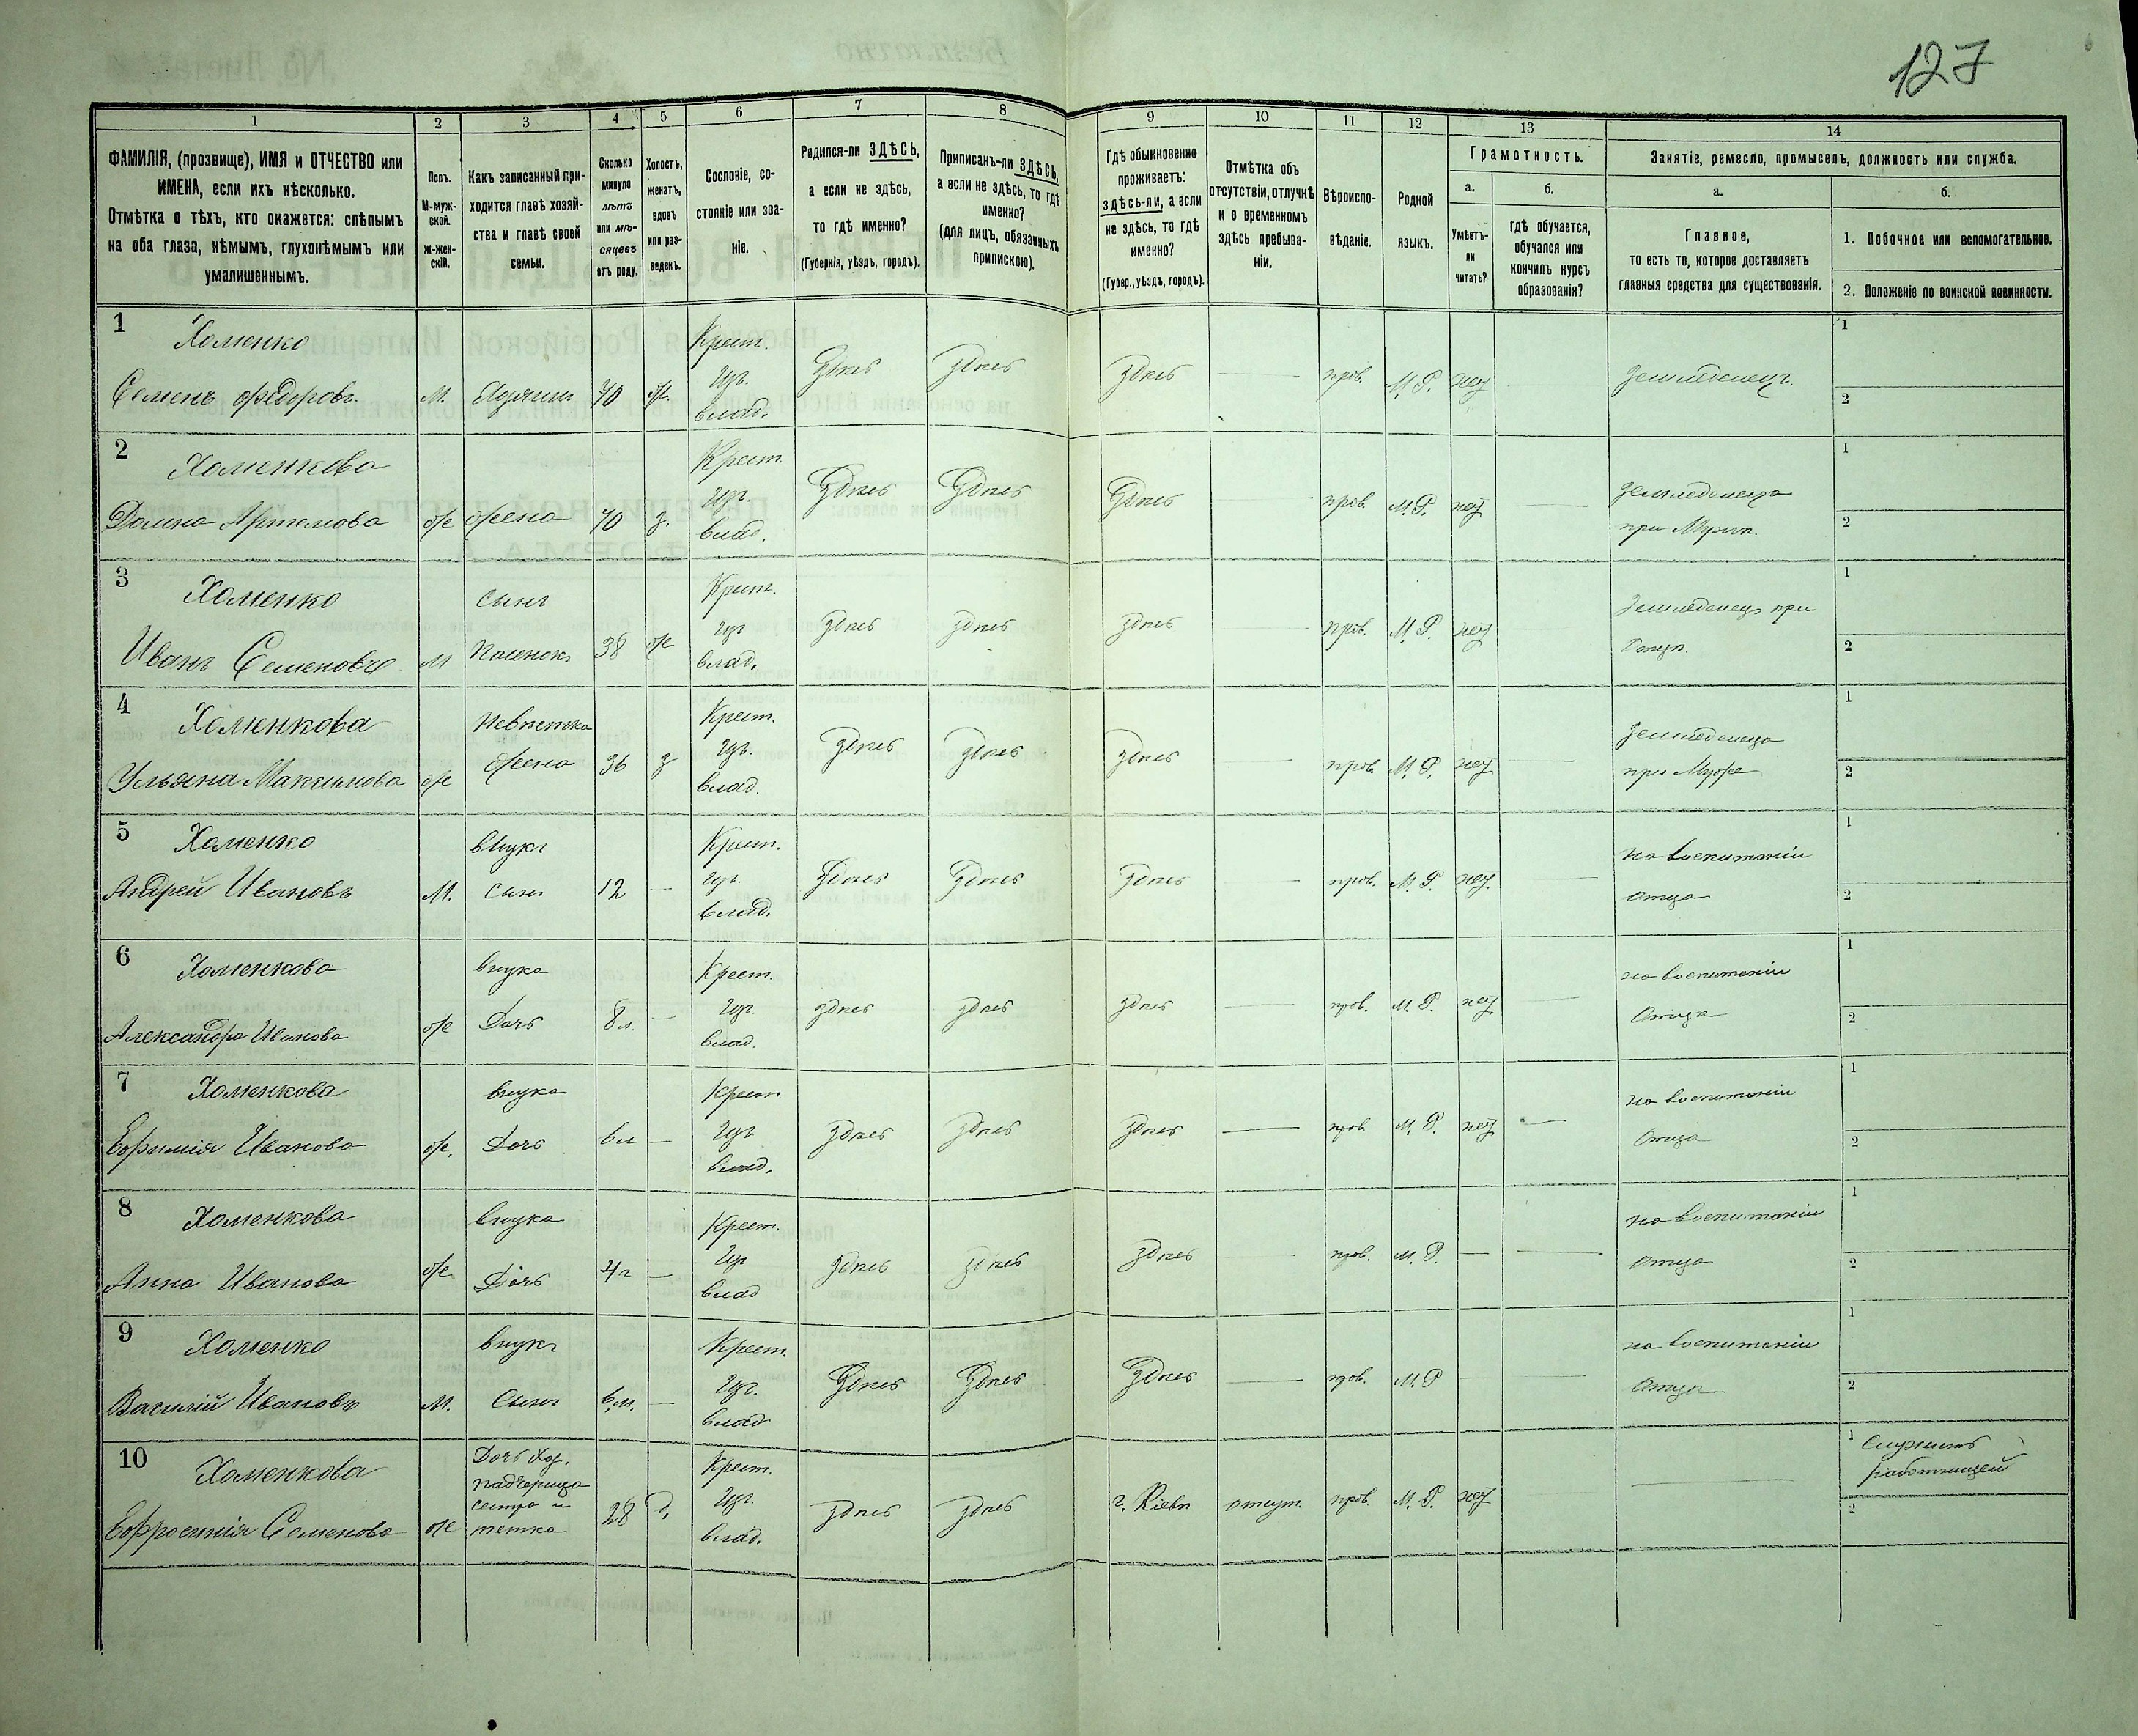 127
1 2 3 4 5 6 7 8 9 10 11 12 13 14
ФАМИЛІЯ, (прозвище), ИМЯ и ОТЧЕСТВО или
ИМЕНА, если ихъ нѣсколько.
Отмѣтка о тѣхъ, кто окажется: слѣпымъ
на оба глаза, нѣмымъ, глухонѣмымъ или
умалишеннымъ.
Полъ.
М-муж-
ской.
ж-жен-
скій.
Какъ записанный при-
ходится главѣ хозяй-
ства и главѣ своей
семьи.
Сколько
минуло
лѣтъ
или мѣ-
сяцевъ
отъ роду.
Холостъ,
женатъ,
вдовъ
или раз-
веденъ.
Сословіе, со-
стояніе или зва-
ніе.
Родился-ли ЗДѢСЬ,
а если не здѣсь,
то гдѣ именно?
(Губернія, уѣздъ, городъ).
Приписанъ-ли ЗДѢСЬ,
а если не здѣсь, то гдѣ
именно?
(для лицъ, обязанныхъ
припискою).
Гдѣ обыкновенно
проживаетъ:
здѣсь-ли, а если
не здѣсь, то гдѣ
именно?
(Губер., уѣздъ, городъ).
Отмѣтка объ
отсутствіи, отлучкѣ
и о временномъ
здѣсь пребыва-
ніи.
Вѣроиспо-
вѣданіе.
Родной
языкъ.
Грамотность.
а.
Умѣетъ-
ли
читать?
б.
гдѣ обучается,
обучался или
кончилъ курсъ
образованія?
Занятіе, ремесло, промыселъ, должность или служба.
а.
Главное,
то есть то, которое доставляетъ
главныя средства для существованія.
б.
1. Побочное или вспомогательное.
2. Положеніе по воинской повинности.
1
Хоменко
Семенъ Ѳедоровъ
М. Хозяинъ 70 ж.
Крест.
изъ
влад.
здѣсь здѣсь здѣсь — пров. М. Р. нѣт —
Земледѣлецъ.
1
2
2
Хоменкова
Домна Артемова
ж жена 70 з.
Крест.
изъ
влад.
Здѣсь Здѣсь Здѣсь — пров. М. Р. нѣт —
Земледѣлица
при Мужѣ.
1
2
3
Хоменко
Иванъ Семеновъ
М
сынъ
38 ж
Крест.
изъ
влад.
здѣсь здѣсь здѣсь — пров. М. Р. нѣт —
Земледѣлецъ при
Отцѣ.
1
2
4
Хоменкова
Ульяна Максимова
ж
невѣстка
жена
36 з
Крест.
изъ.
влад.
здѣсь здѣсь здѣсь — пров. М. Р. нѣт —
Земледѣлица
при Мужѣ
1
2
5
Хоменко
Андрей Ивановъ
М.
внукъ
сынъ
12 —
Крест.
изъ.
влад.
Здѣсь Здѣсь Здѣсь — пров. М. Р. нѣт —
на воспитаніи
отца
1
2
6
Хоменкова
Александра Иванова
ж
внука
Дочь
8 л. —
Крест.
изъ.
влад.
здѣсь здѣсь здѣсь — пров. М. Р. нѣт —
на воспитаніи
Отца
1
2
7
Хоменкова
Ефимія Иванова
ж.
внука
Дочь
6 л —
Крест
изъ
влад.
здѣсь здѣсь здѣсь — пров. М. Р. нѣт —
на воспитаніи
Отца
1
2
8
Хоменкова
Анна Иванова
ж
внука
Дочь
4 г —
Крест.
изъ
влад
здѣсь здѣсь здѣсь — пров. М. Р. — —
на воспитаніи
отца
1
2
9
Хоменко
Василій Ивановъ
М.
внукъ
Сынъ
6 м. —
Крест.
изъ.
влад
Здѣсь Здѣсь Здѣсь — пров. М. Р — —
на воспитаніи
Отца
1
2
10
Хоменкова
Ефросинія Семенова
ж
Дочь Хоз.
падчерица
сестра и
тетка
28 д.
Крест.
изъ.
влад.
здѣсь здѣсь г. Кіевъ отсут. пров. М. Р. нѣт — —
1 Служитъ
работницей
2